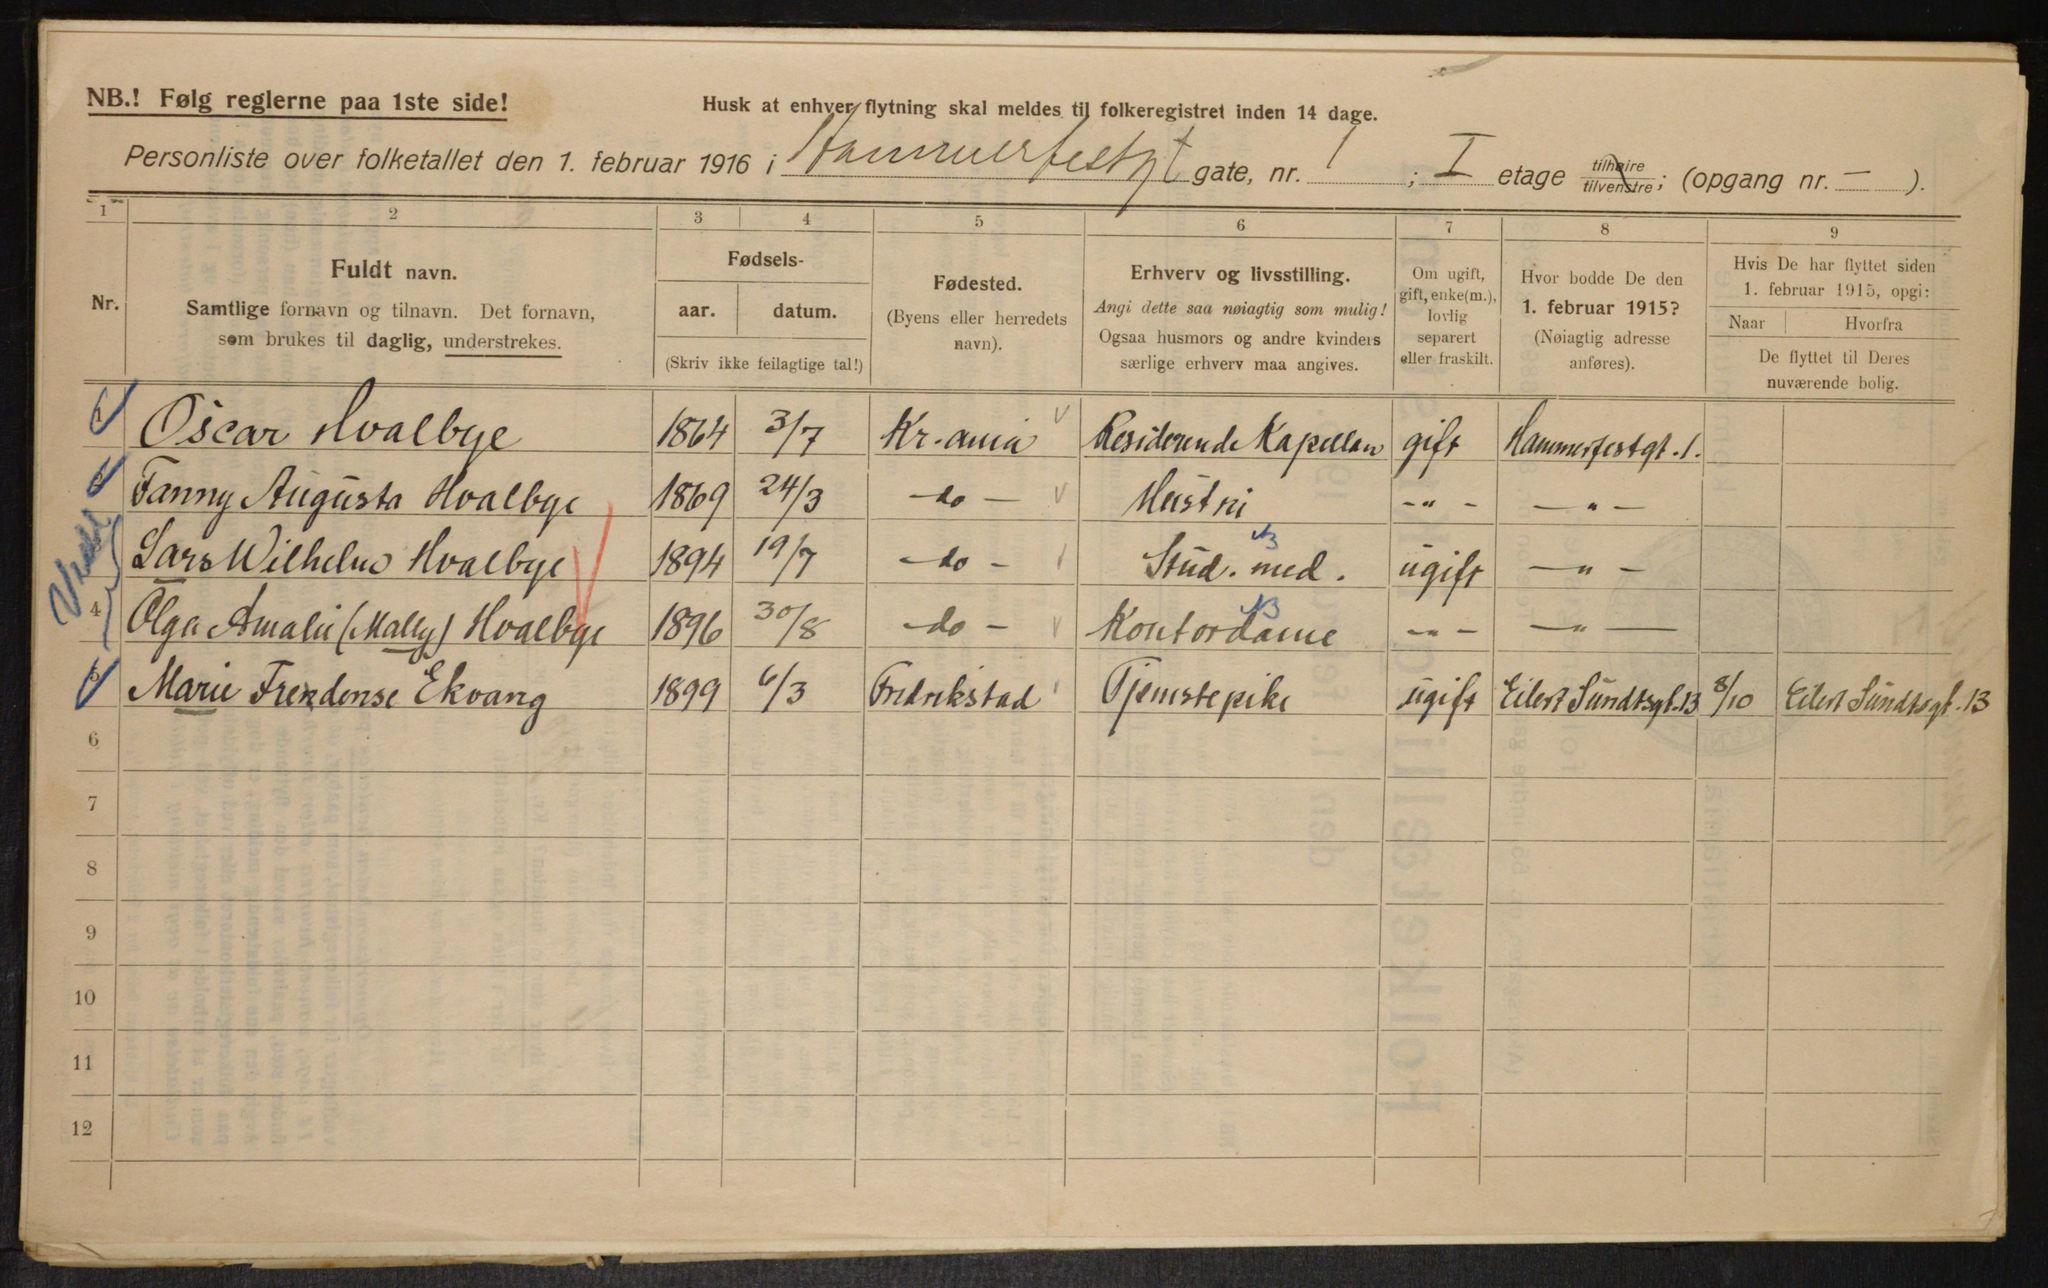 NB.! Følg reglerne paa 1ste side!
Husk at enhver flytning skal meldes til folkeregistret inden 14 dage.
Personliste over folketallet den 1. februar 1916 i Hammerfestgt gate, nr. 1 ; I etage tilhøire tilvenstre ; (opgang nr. — ).
1 2 3 4 5 6 7 8 9
Nr.
Fuldt navn.
Samtlige fornavn og tilnavn. Det fornavn,
som brukes til daglig, understrekes.
Fødsels-
aar. datum.
(Skriv ikke feilagtige tal!)
Fødested.
(Byens eller herredets
navn).
Erhverv og livsstilling.
Angi dette saa nøiagtig som mulig!
Ogsaa husmors og andre kvinders
særlige erhverv maa angives.
Om ugift,
gift, enke(m.),
lovlig
separert
eller fraskilt.
Hvor bodde De den
1. februar 1915?
(Nøiagtig adresse
anføres).
Hvis De har flyttet siden
1. februar 1915, opgi:
Naar Hvorfra
De flyttet til Deres
nuværende bolig.
1 Oscar Hvalbye 1864 3/7 Kr.ania Residerende Kapellan gift Hammerfestgt. 1.
Fanny Augusta Hvalbye 1869 24/3 — do — Hustru -„- —„—
Lars Wilhelm Hvalbye 1894 19/7 — do — Stud. med. ugift —„—
4 Olga Amalie (Mally) Hvalbye 1896 30/8 — do — Kontordame -„- —„—
5 Marie Fredense Ekvang 1899 6/3 Fredrikstad Tjenstepike ugift Eilert Sundtsgt. 13 8/10 Eilert Sundtsgt. 13
6
7
8
9
10
11
12